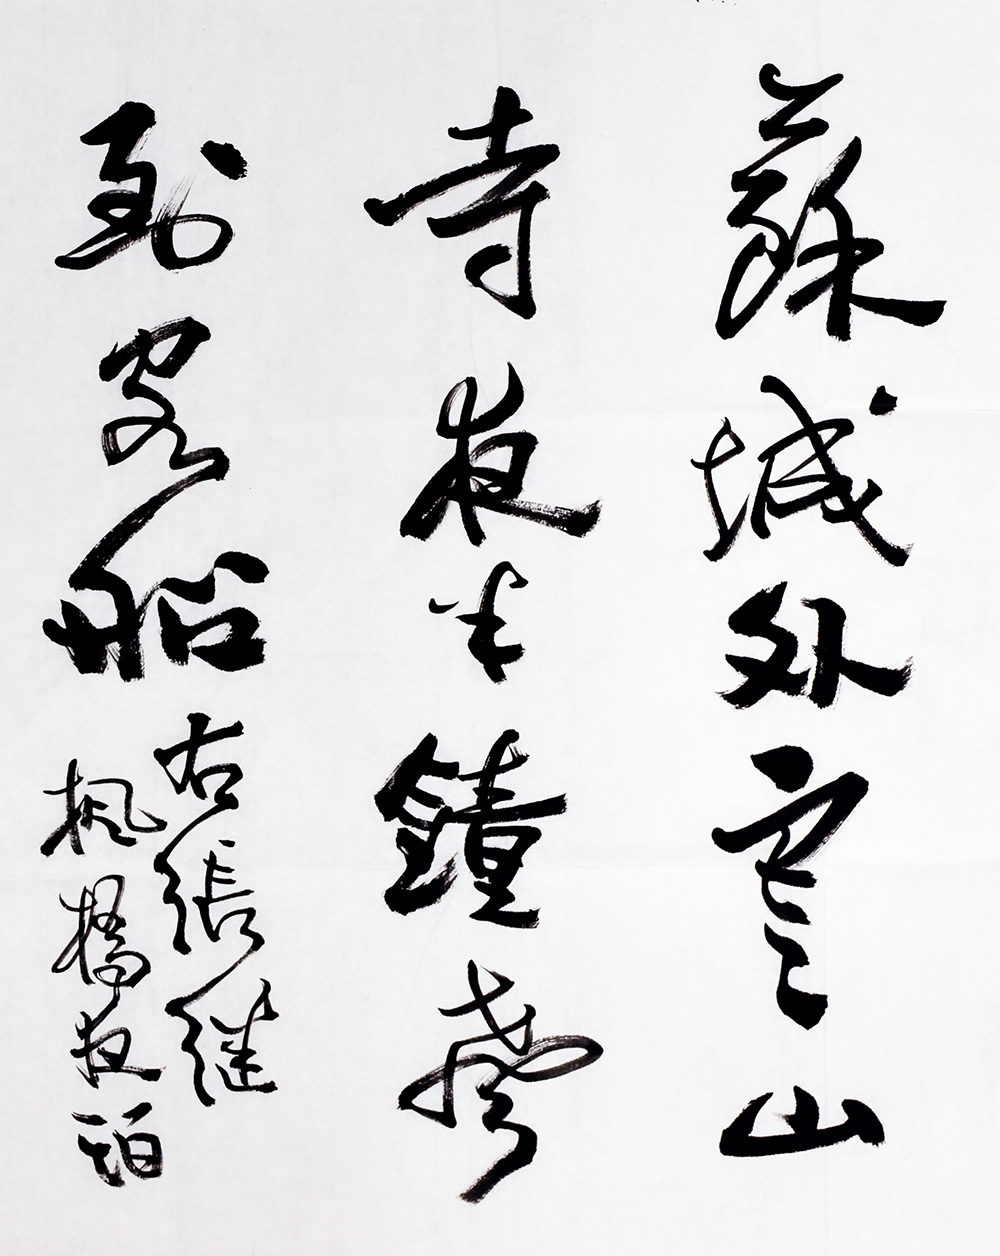 蘇城外寒山
寺夜半鐘聲
到客船
右張继
楓橋夜泊